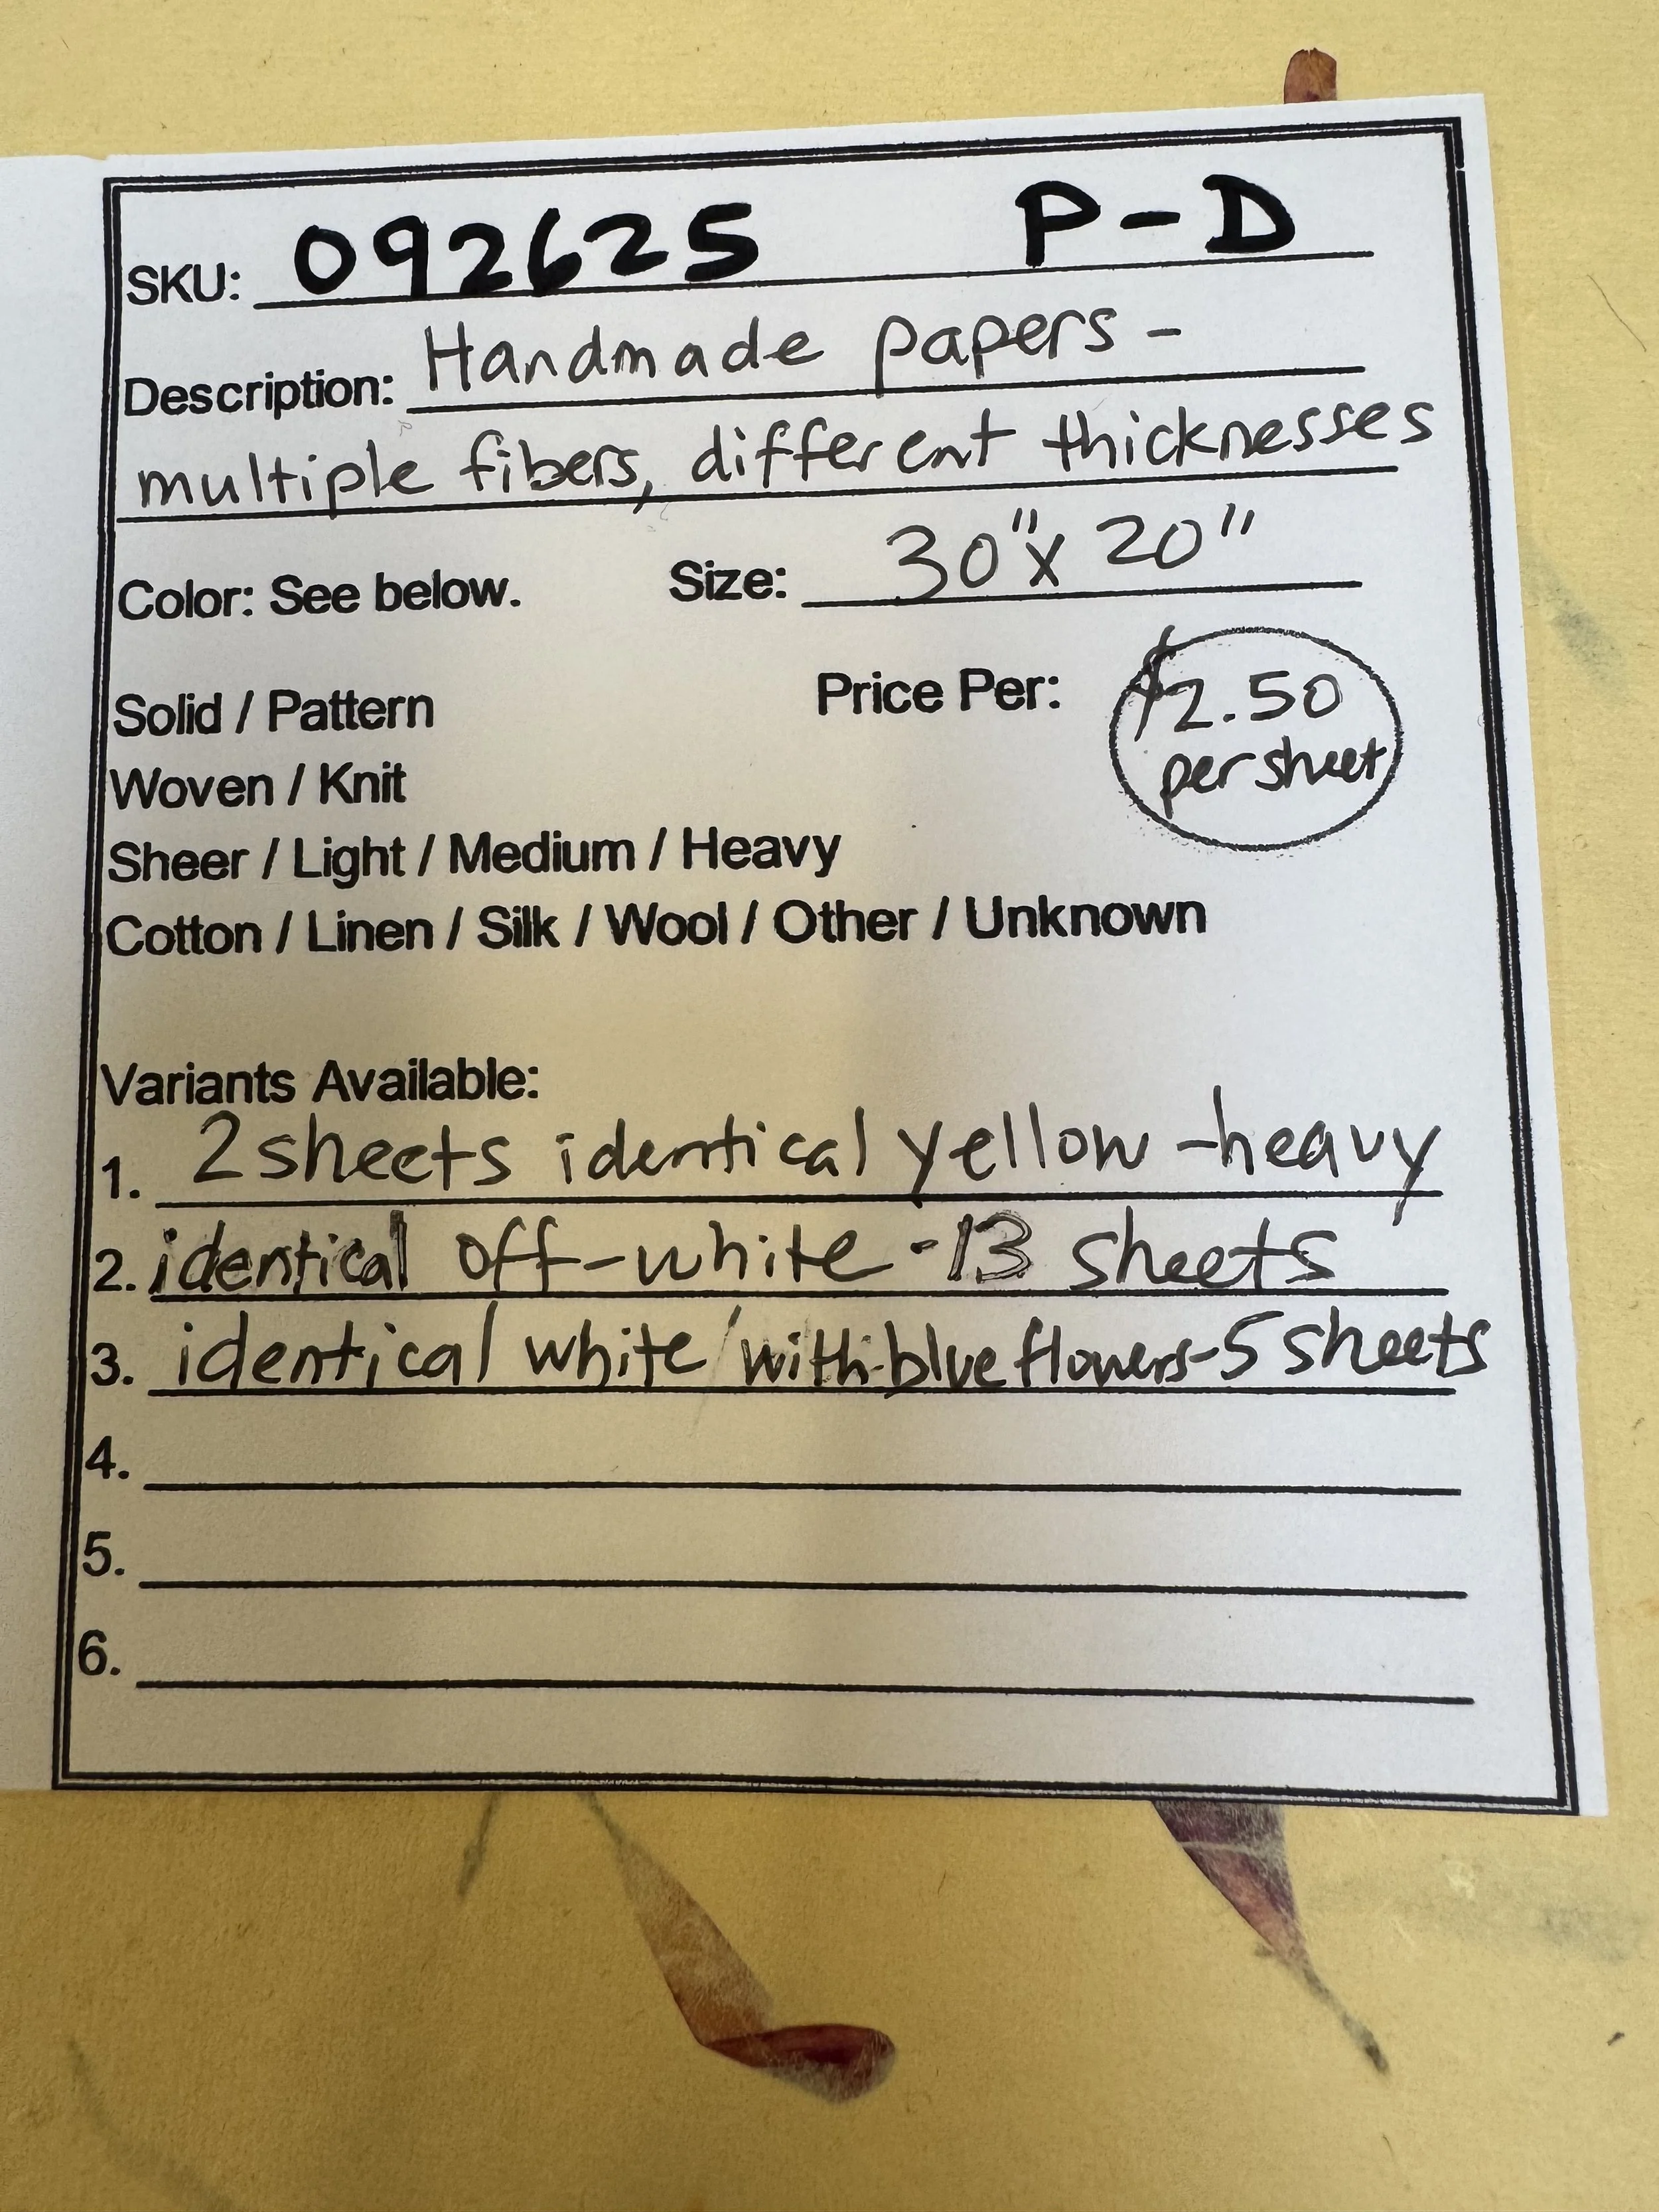 SKU: 092625 P-D
Description: Handmade papers -
multiple fibers, different thicknesses
Color: See below. Size: 30"x 20"
Solid / Pattern Price Per: $2.50
per sheet
Woven / Knit
Sheer / Light / Medium / Heavy
Cotton / Linen / Silk / Wool / Other / Unknown
Variants Available:
1. 2 sheets identical yellow - heavy
2. identical off-white - 13 sheets
3. identical white with blue flowers - 5 sheets
4.
5.
6.